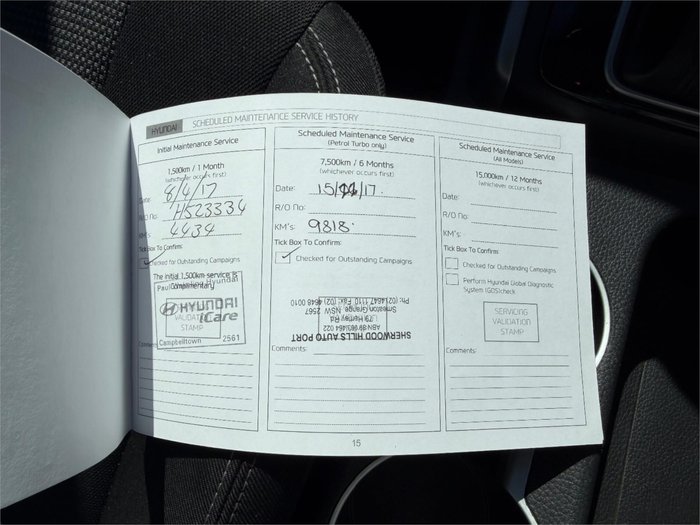 HYUNDAI SCHEDULED MAINTENANCE SERVICE HISTORY
Initial Maintenance Service
1,500km / 1 Month
(whichever occurs first)
Date: 8/4/17
R/O No: H523334
KM's: 4434
Tick Box To Confirm:
Checked for Outstanding Campaigns
The initial 1,500km service is
Complimentary
Hyundai
HYUNDAI
iCare
VALIDATION
STAMP
Campbelltown 2561
Comments:
Scheduled Maintenance Service
(Petrol Turbo only)
7,500km / 6 Months
(whichever occurs first)
Date: 15/ /17
R/O No:
KM's: 9818
Tick Box To Confirm:
Checked for Outstanding Campaigns
SHERWOOD HILLS AUTO PORT
79 Hartley Rd
Smeaton Grange NSW 2567
Ph: (02) 4647 1110 Fax: (02) 4648 0010
Comments:
Scheduled Maintenance Service
(All Models)
15,000km / 12 Months
(whichever occurs first)
Date:
R/O No:
KM's:
Tick Box To Confirm:
Checked for Outstanding Campaigns
Perform Hyundai Global Diagnostic
System (GDS)check
SERVICING
VALIDATION
STAMP
Comments:
15